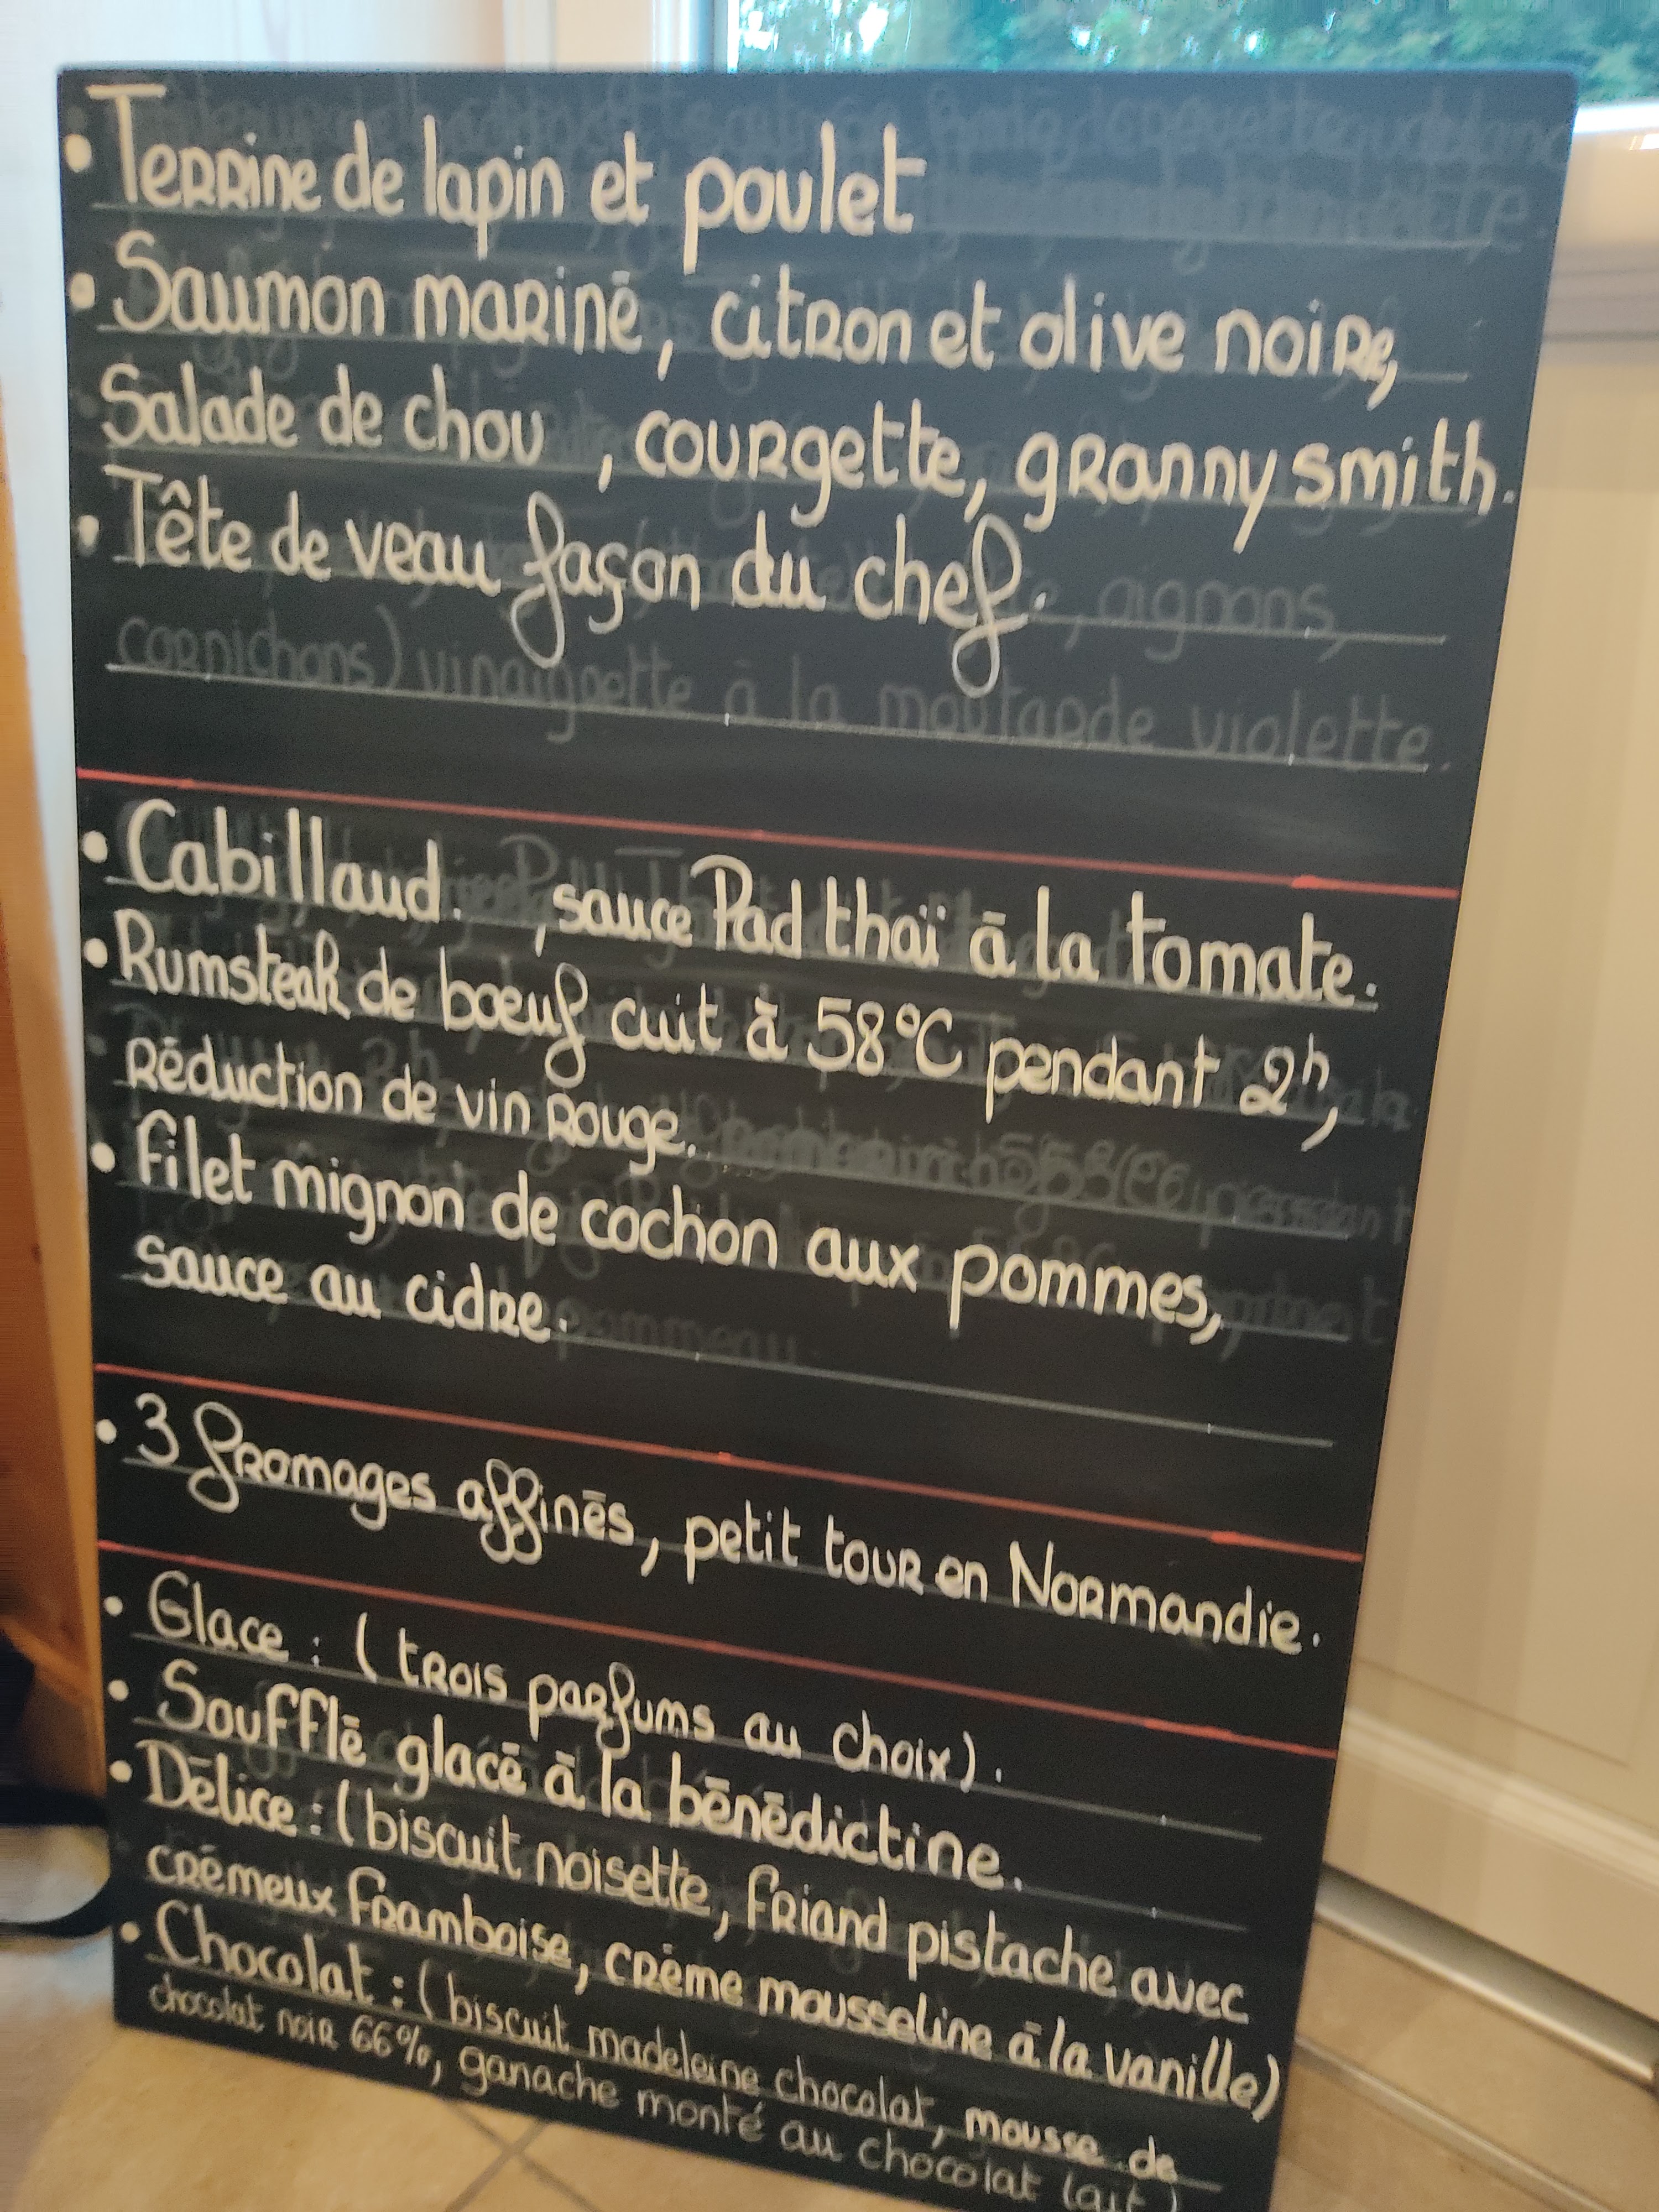 • Terrine de lapin et poulet
• Saumon mariné, citron et olive noire,
Salade de chou , courgette, granny smith.
• Tête de veau façon du chef.
, oignons,
cornichons) vinaigrette à la moutarde violette.
• Cabillaud. , sauce Pad thaï à la tomate.
• Rumsteak de bœuf cuit à 58°C pendant 2h,
Réduction de vin rouge.
• Filet mignon de cochon aux pommes,
sauce au cidre.
pommeau
• 3 fromages affinés, petit tour en Normandie.
• Glace : ( trois parfums au choix).
• Soufflé glacé à la bénédictine.
• Délice : ( biscuit noisette, friand pistache avec
crémeux framboise, crème mousseline à la vanille)
• Chocolat : ( biscuit madeleine chocolat, mousse de
chocolat noir 66%, ganache monté au chocolat lait)